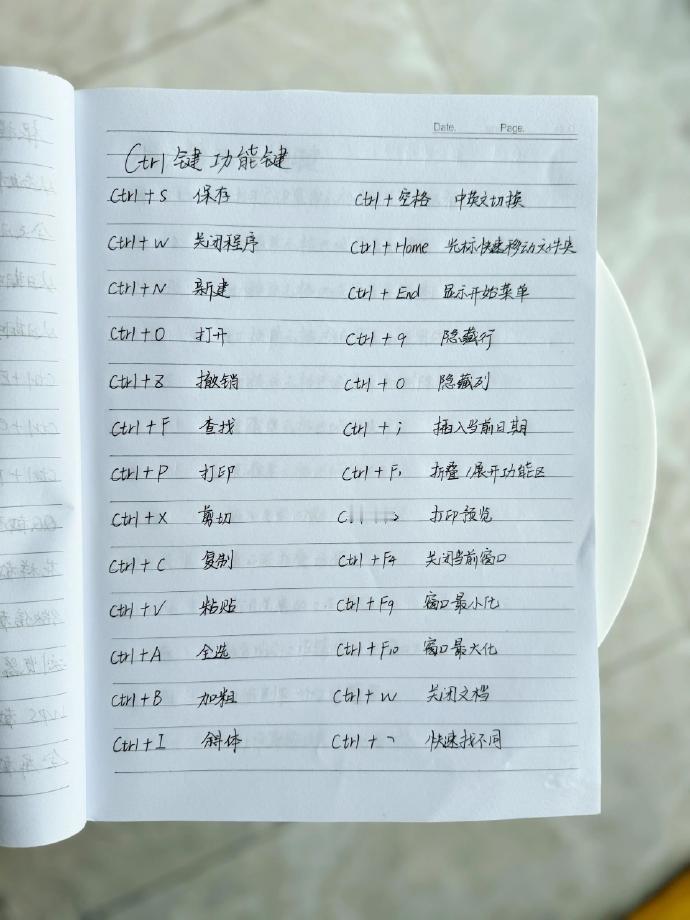 Date. Page.
Ctrl键功能键
Ctrl+S 保存
Ctrl+W 关闭程序
Ctrl+N 新建
Ctrl+O 打开
Ctrl+Z 撤销
Ctrl+F 查找
Ctrl+P 打印
Ctrl+X 剪切
Ctrl+C 复制
Ctrl+V 粘贴
Ctrl+A 全选
Ctrl+B 加粗
Ctrl+I 斜体
Ctrl+空格 中英文切换
Ctrl+Home 光标快速移动文件夹
Ctrl+End 显示开始菜单
Ctrl+9 隐藏行
Ctrl+0 隐藏列
Ctrl+; 插入当前日期
Ctrl+F1 折叠/展开功能区
打印预览
Ctrl+F4 关闭当前窗口
Ctrl+F9 窗口最小化
Ctrl+F10 窗口最大化
Ctrl+W 关闭文档
Ctrl+ 快速找不同